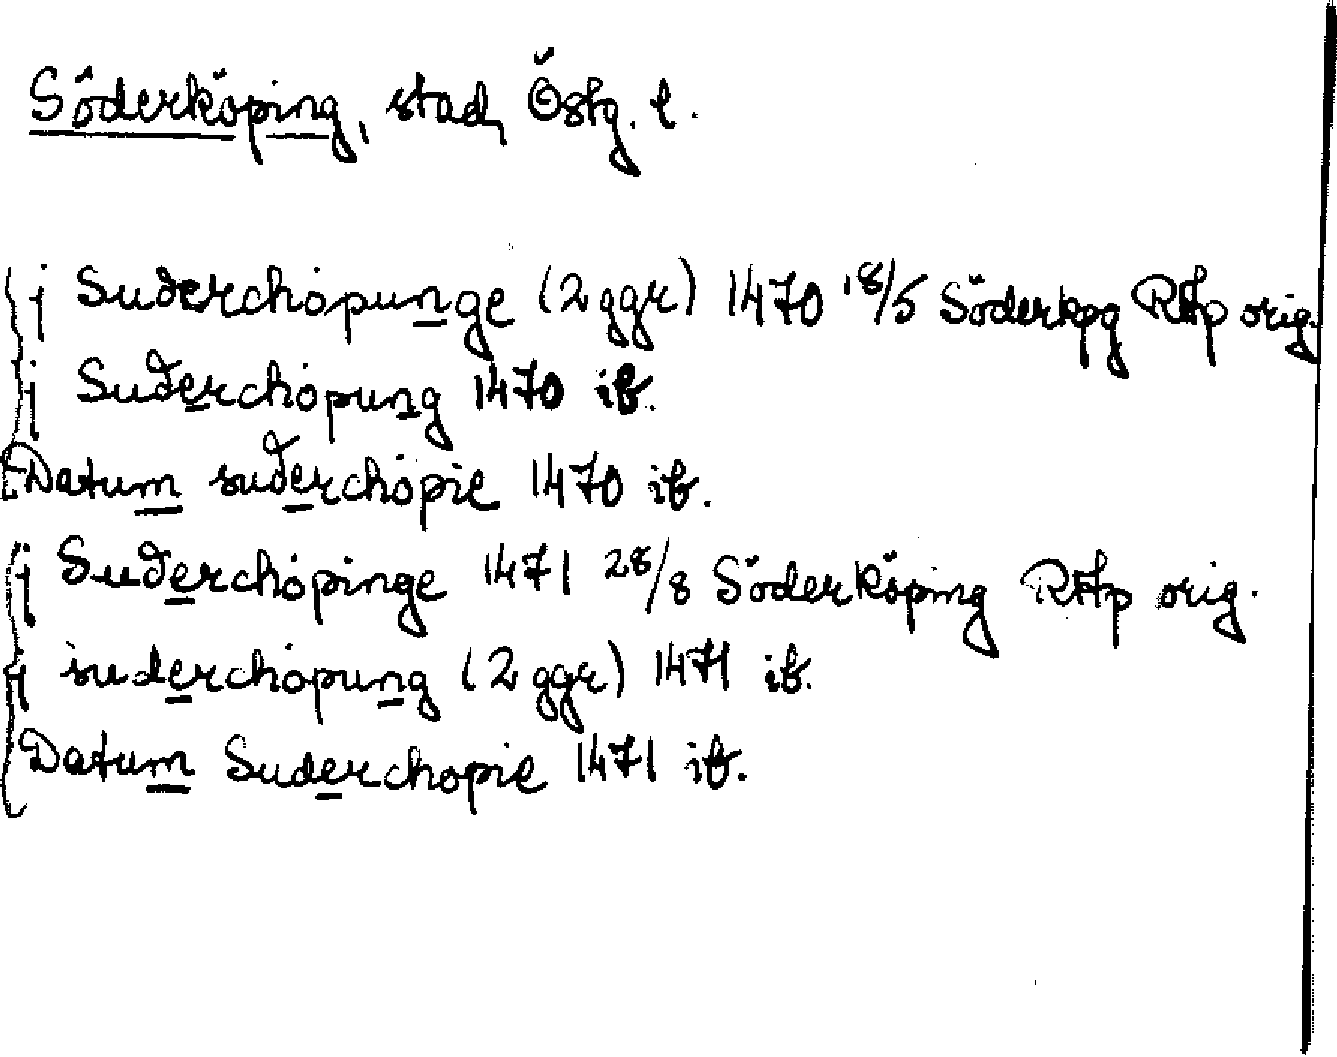 Söderköping, stad, Östg. l.
j Suderchöpunge (2 ggr) 1470 18/5 Söderkpg RAp orig.
j Suderchöpung 1470 ib.
Datum suderchöpie 1470 ib.
j Suderchöpinge 1471 28/8 Söderköping RAp orig.
j suderchöpung (2 ggr) 1471 ib.
Datum Suderchopie 1471 ib.